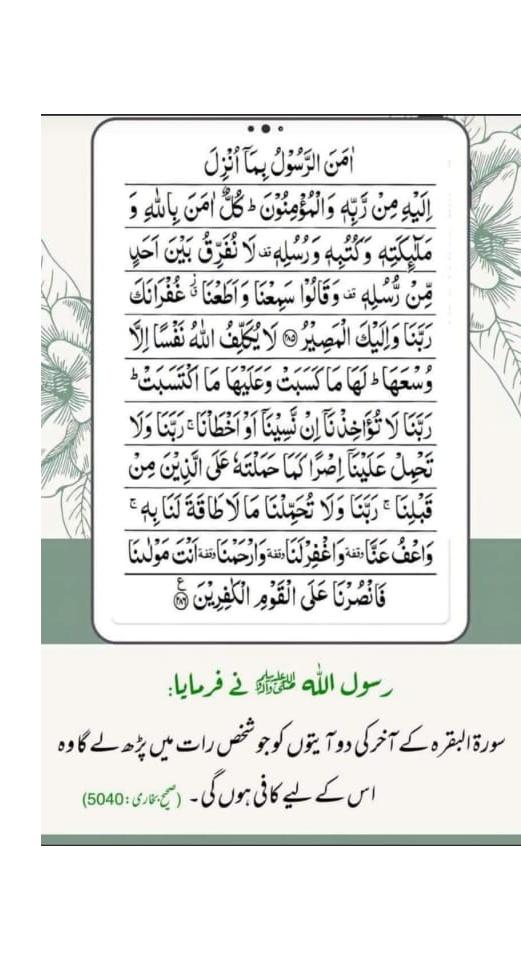 اٰمَنَ الرَّسُوْلُ بِمَاۤ اُنْزِلَ
اِلَیْهِ مِنْ رَّبِّهٖ وَالْمُؤْمِنُوْنَ ؕ كُلٌّ اٰمَنَ بِاللّٰهِ وَ
مَلٰٓىِٕكَتِهٖ وَكُتُبِهٖ وَرُسُلِهٖ۫ لَا نُفَرِّقُ بَیْنَ اَحَدٍ
مِّنْ رُّسُلِهٖ۫ وَقَالُوْا سَمِعْنَا وَاَطَعْنَا ۗ غُفْرَانَكَ
رَبَّنَا وَاِلَیْكَ الْمَصِیْرُ ﴿۲۸۵﴾ لَا یُكَلِّفُ اللّٰهُ نَفْسًا اِلَّا
وُسْعَهَا ؕ لَهَا مَا كَسَبَتْ وَعَلَیْهَا مَا اكْتَسَبَتْ ؕ
رَبَّنَا لَا تُؤَاخِذْنَاۤ اِنْ نَّسِیْنَاۤ اَوْ اَخْطَاْنَا ۚ رَبَّنَا وَلَا
تَحْمِلْ عَلَیْنَاۤ اِصْرًا كَمَا حَمَلْتَهٗ عَلَی الَّذِیْنَ مِنْ
قَبْلِنَا ۚ رَبَّنَا وَلَا تُحَمِّلْنَا مَا لَا طَاقَةَ لَنَا بِهٖ ۚ
وَاعْفُ عَنَّا وقفة وَاغْفِرْ لَنَا وقفة وَارْحَمْنَا وقفة اَنْتَ مَوْلٰىنَا
فَانْصُرْنَا عَلَی الْقَوْمِ الْكٰفِرِیْنَ ﴿۲۸۶﴾ ع
رسول اللہ ﷺ نے فرمایا:
سورۃ البقرہ کے آخر کی دو آیتوں کو جو شخص رات میں پڑھ لے گا وہ
اس کے لیے کافی ہوں گی۔ (صحیح بخاری: 5040)